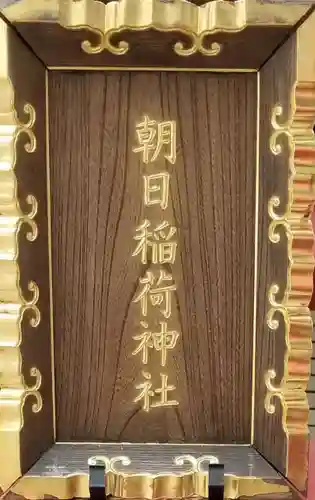 朝日稲荷神社